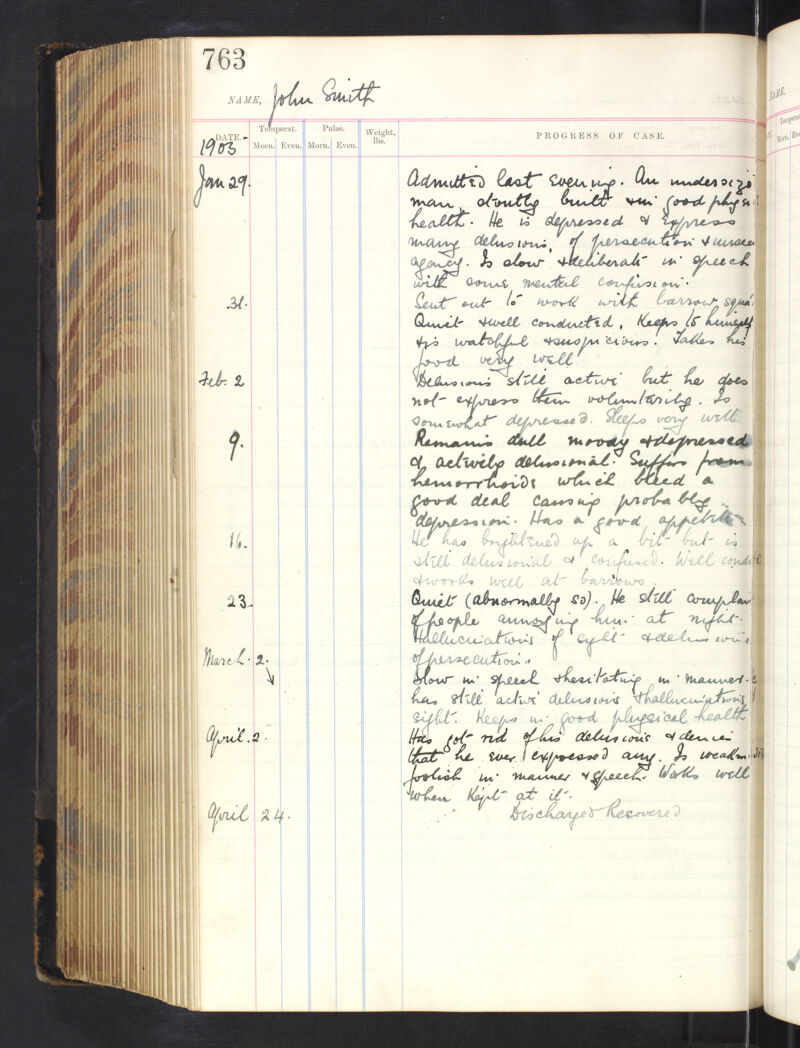 763
NAME, John Smith
DATE. Temperat. Pulse. Weight, lbs. PROGRESS OF CASE.
1905 Morn. Even. Morn. Even.
Jan 29. Admitted last evening. An undersize
man, stoutly built & in good physi
health. He is depressed & express
many delusions, of persecution & unseen
agency. Is slow & deliberate in speech
with some mental confusion.
31. Sent out to work with barrow squa
Quiet & well conducted. Keeps to himself
& is watchful & suspicious. Takes his
food very well
Feb. 2 Delusions still active but he does
not express them voluntarily. Is
somewhat depressed. Sleeps very well
9. Remains dull moody & depressed
& actively delusional. Suffers from
hemorrhoids which bleed a
good deal causing probably
depression. Has a good appetite
16. He has brightened up a bit but is
still delusional & confused. Well condu
& works well at barrows
23. Quiet (abnormally so). He still complain
of people annoying him at night.
Hallucinations of sight & delusions
of persecution.
March. 2. Slow in speech & hesitating in manner.
has still active delusions & hallucinations
sight. Keeps in good physical health
April. 2. Has got rid of his delusions & denies
that he ever expressed any. Is weakm
foolish in manner & speech. Works well
when kept at it.
April 24. Discharged Recovered
NAME,
Temperat
Morn. Even